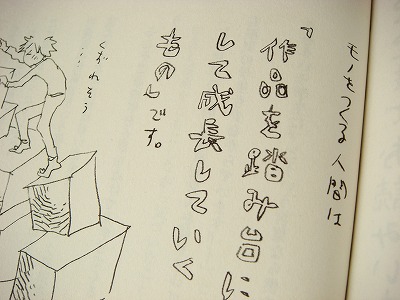 モノをつくる人間は
『作品を踏み台に
して成長していく
もの』です。
くずれそう
……